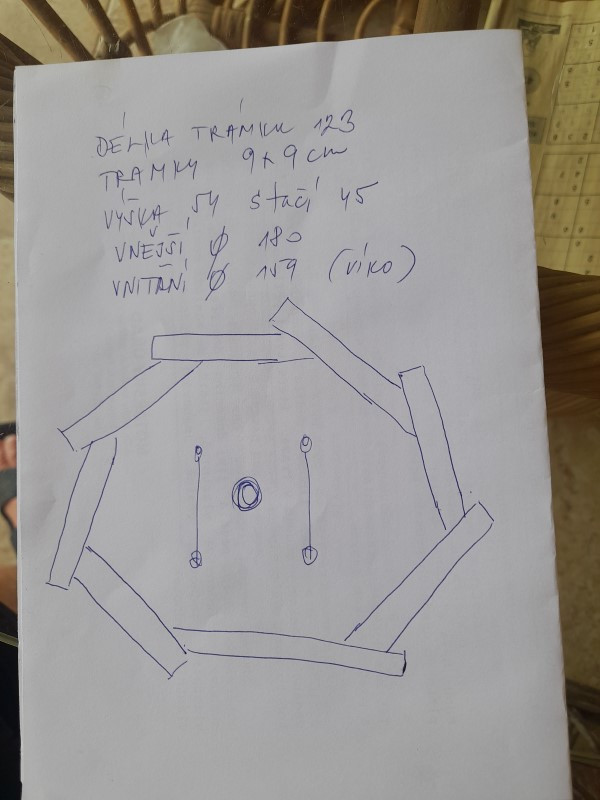 DÉLKA TRÁMKU 123
TRÁMKY 9x9cm
VÝŠKA 54 stačí 45
VNEJŠÍ Ø 180
VNITŘNÍ Ø 159 (VÍKO)